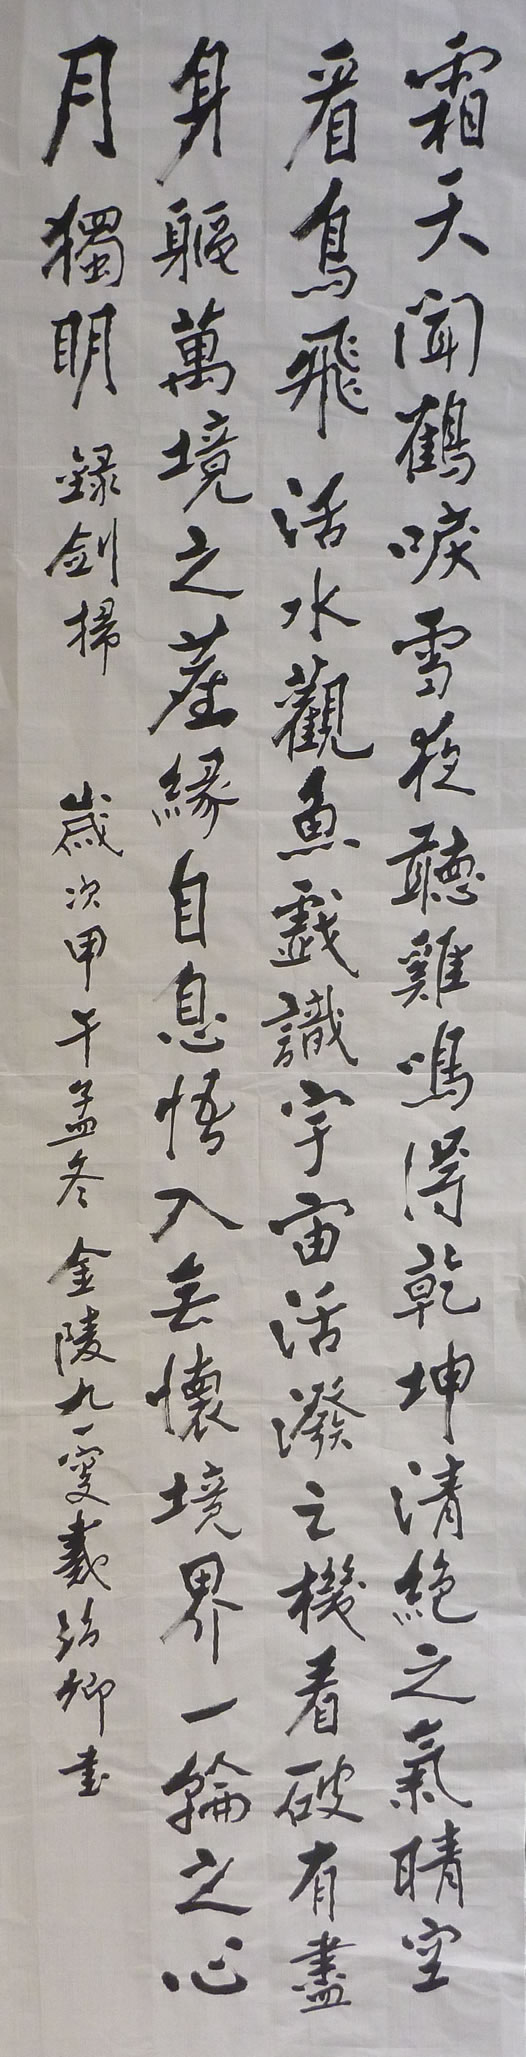 霜天聞鶴唳雪夜聽雞鳴得乾坤清絶之氣晴空
看鳥飛活水觀魚戲識宇宙活潑之機看破有盡
身軀萬境之塵緣自息悟入無懷境界一輪之心
月獨明 錄劍掃 歲次甲午孟冬 金陵九一叟戴 卿書